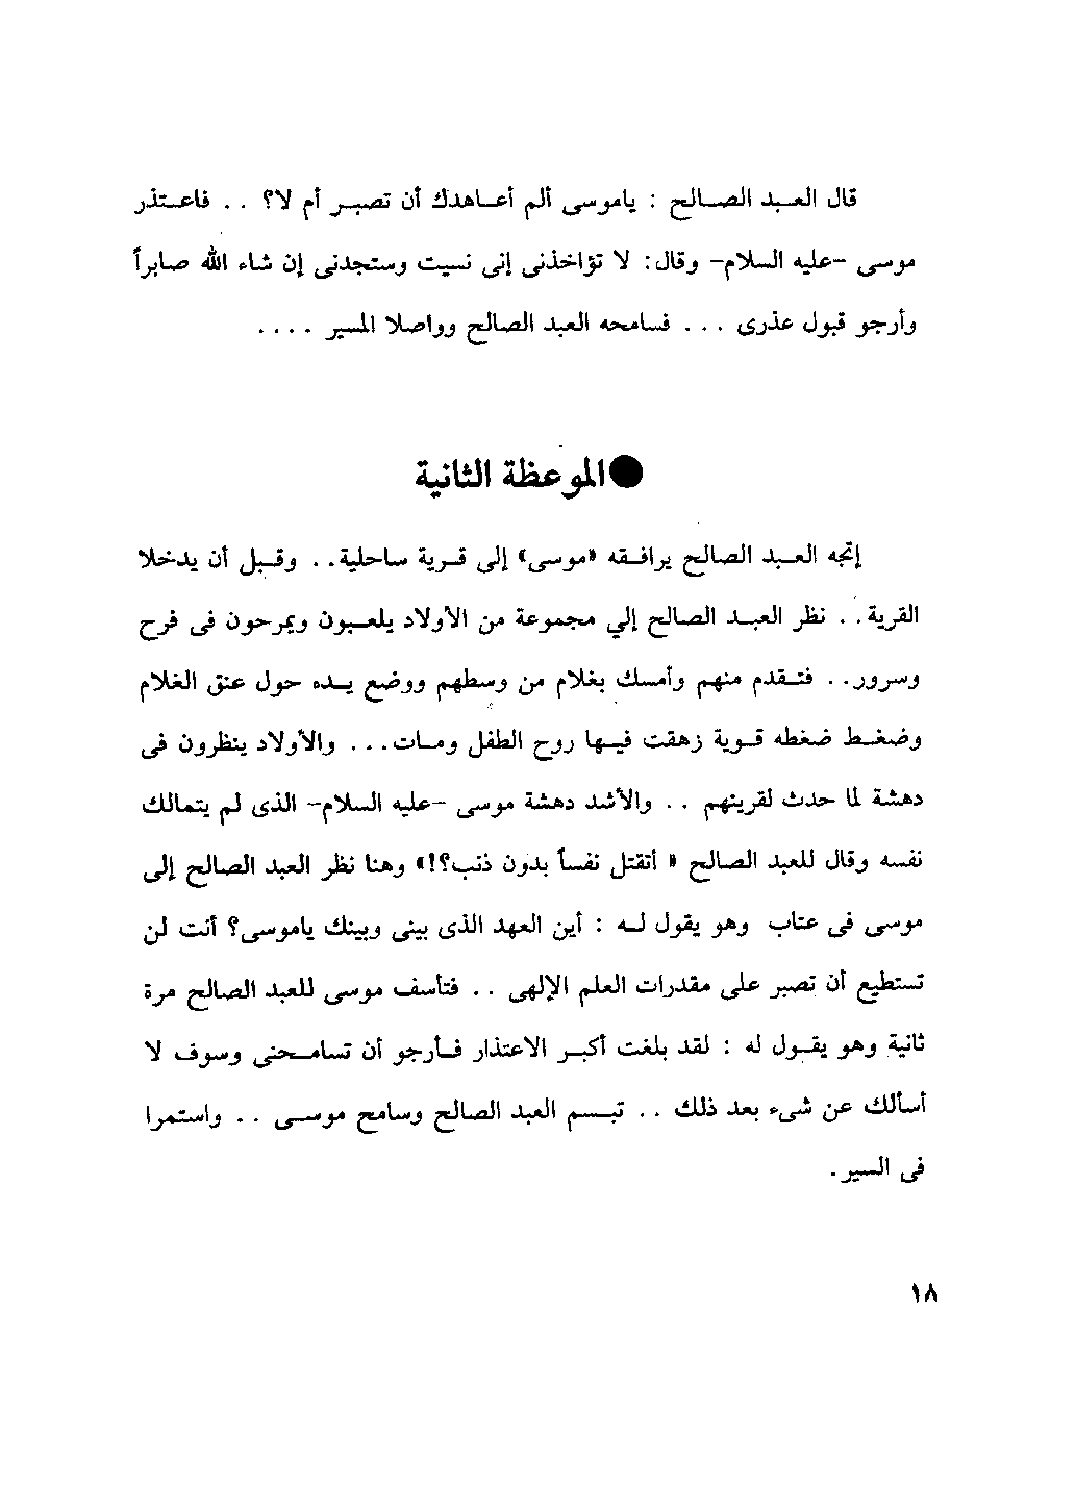 قال العبد الصالح : ياموسى ألم أعاهدك أن تصبر أم لا؟ . . فاعتذر
موسى -عليه السلام- وقال: لا تؤاخذنى إنى نسيت وستجدنى إن شاء الله صابراً
وأرجو قبول عذرى . . . فسامحه العبد الصالح وواصلا المسير . . . .
●الموعظة الثانية
إتجه العبد الصالح يرافقه «موسى» إلى قرية ساحلية . . وقبل أن يدخلا
القرية . . نظر العبد الصالح إلي مجموعة من الأولاد يلعبون ويمرحون فى فرح
وسرور. . فتقدم منهم وأمسك بغلام من وسطهم ووضع يده حول عنق الغلام
وضغط ضغطه قوية زهقت فيها روح الطفل ومات. . . والأولاد ينظرون فى
دهشة لما حدث لقرينهم . . والأشد دهشة موسى -عليه السلام- الذى لم يتمالك
نفسه وقال للعبد الصالح « أتقتل نفساً بدون ذنب؟!» وهنا نظر العبد الصالح إلى
موسى فى عتاب وهو يقول له : أين العهد الذى بينى وبينك ياموسى؟ أنت لن
تستطيع أن تصبر على مقدرات العلم الإلهى . . فتأسف موسى للعبد الصالح مرة
ثانية وهو يقول له : لقد بلغت أكبر الاعتذار فأرجو أن تسامحنى وسوف لا
أسألك عن شىء بعد ذلك . . تبسم العبد الصالح وسامح موسى . . واستمرا
فى السير .
١٨